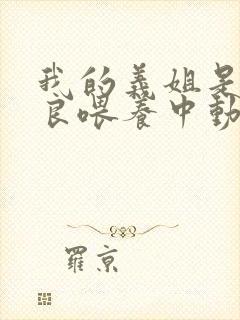 我的義姐是
良喂养中動
羅京